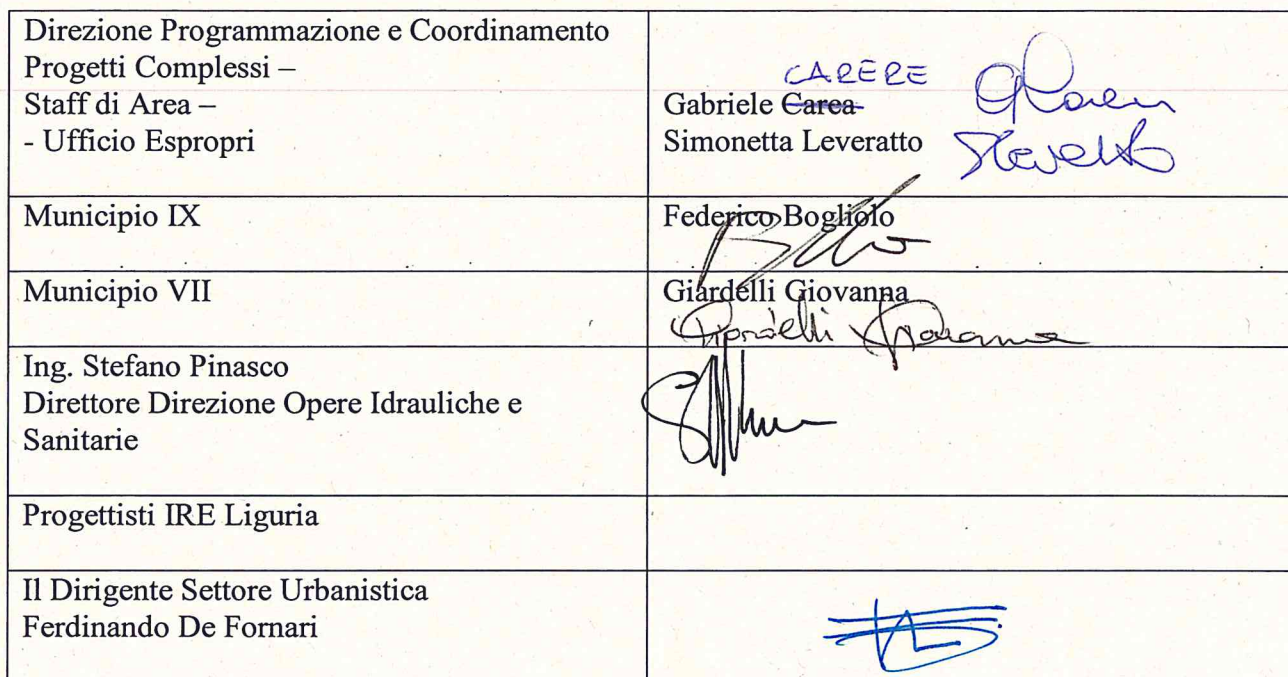 Direzione Programmazione e Coordinamento
Progetti Complessi –
Staff di Area –
- Ufficio Espropri
CARERE
Gabriele Carea
Simonetta Leveratto
Municipio IX
Federico Bogliolo
Municipio VII
Giardelli Giovanna
Giardelli Giovanna
Ing. Stefano Pinasco
Direttore Direzione Opere Idrauliche e
Sanitarie
Progettisti IRE Liguria
Il Dirigente Settore Urbanistica
Ferdinando De Fornari